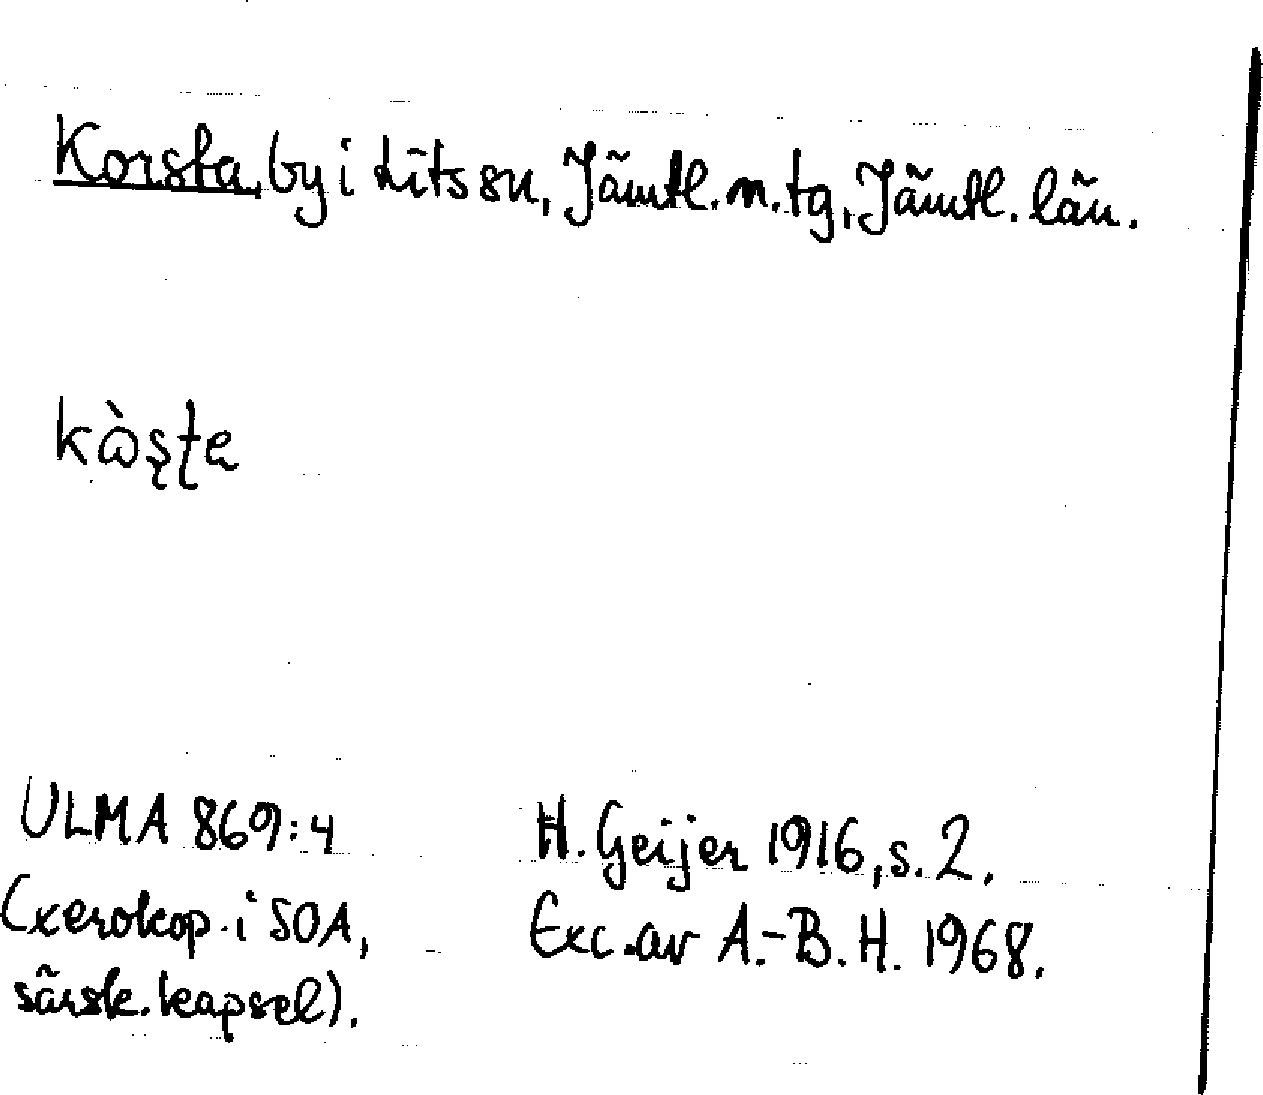 Korsta, by i Lits sn, Jämtl. n. tg, Jämtl. län.
ULMA 869:4
(xerokop. i SOA,
särsk. kapsel).
H. Geijer 1916, s. 2.
Exc. av A.-B. H. 1968.